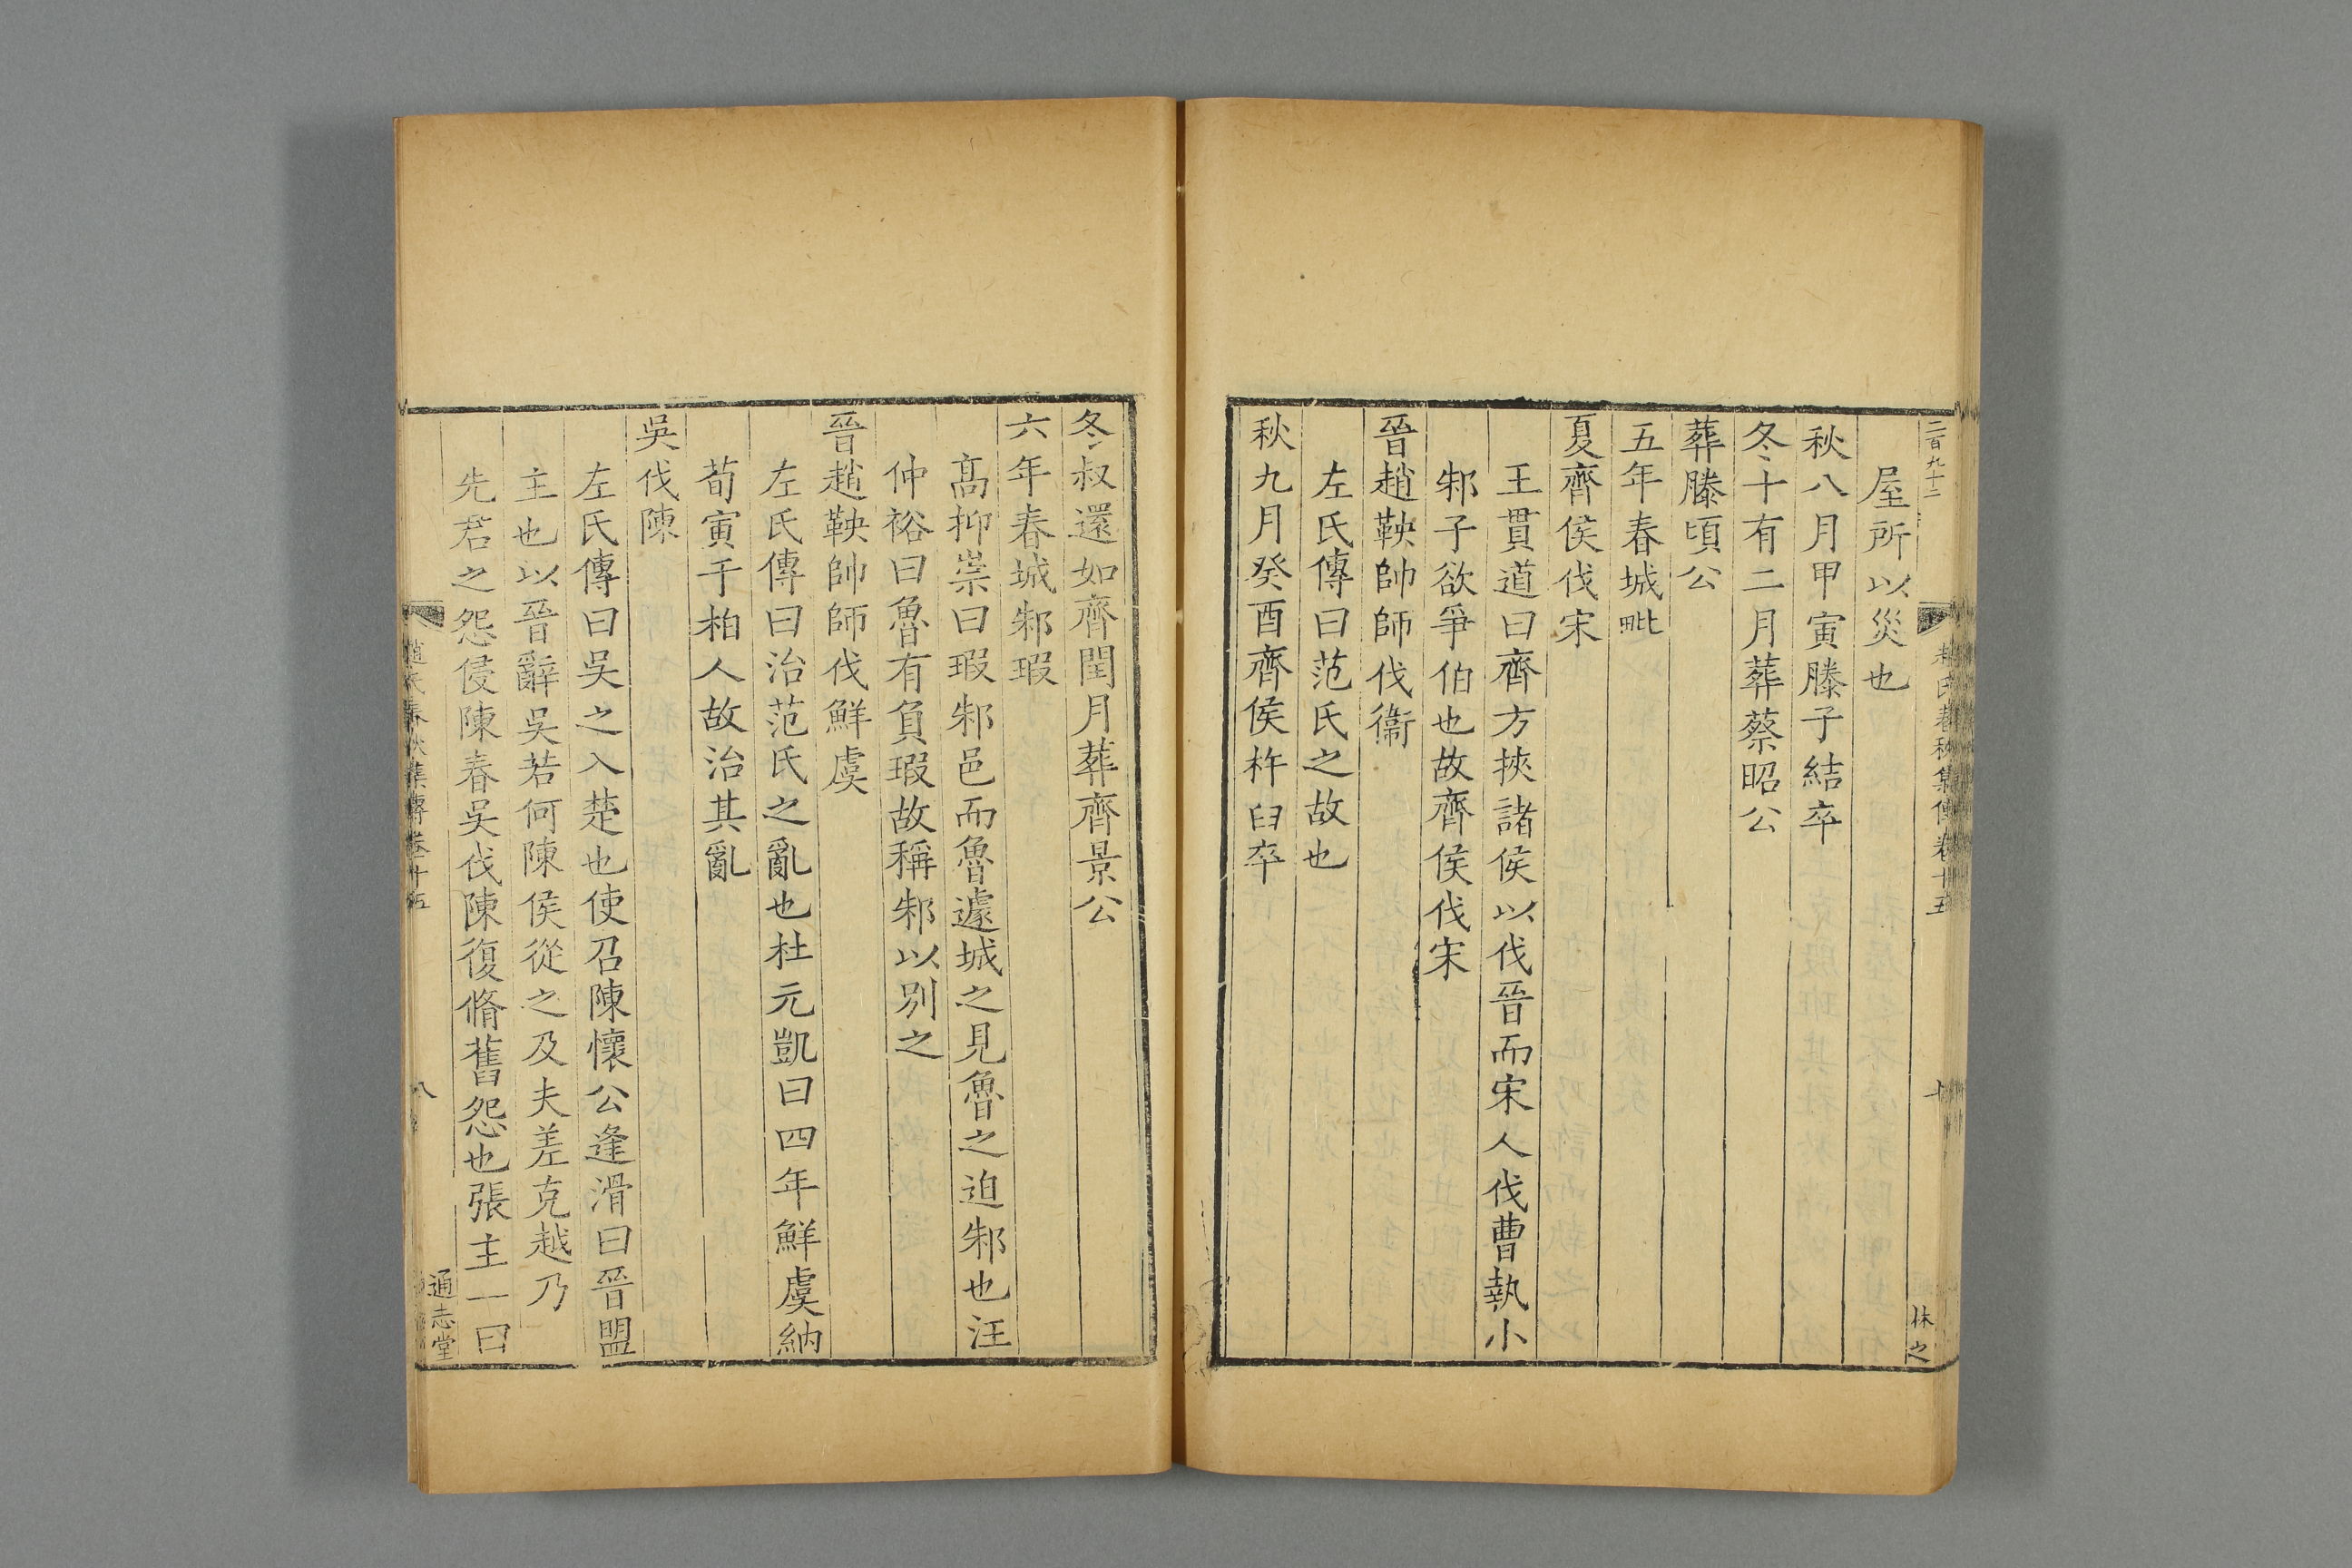 二百九十二
春秋集傳卷十五
林之
屋所以災也
秋八月甲寅滕子結卒
冬十有二月葬蔡昭公
葬滕頃公
五年春城毗
夏齊侯伐宋
王貫道曰齊方挾諸侯以伐晉而宋人伐曹執小
邾子欲爭伯也故齊侯伐宋
晉趙鞅帥師伐衞
左氏傳曰范氏之故也
秋九月癸酉齊侯杵臼卒
冬叔還如齊閏月葬齊景公
六年春城邾瑕
髙抑崇曰瑕邾邑而魯遽城之見魯之迫邾也汪
仲裕曰魯有負瑕故稱邾以別之
晉趙鞅帥師伐鮮虞
左氏傳曰治范氏之亂也杜元凱曰四年鮮虞納
荀寅于柏人故治其亂
吳伐陳
左氏傳曰吳之入楚也使召陳懷公逢滑曰晉盟
主也以晉辭吳若何陳侯從之及夫差克越乃
先君之怨侵陳春吳伐陳復脩舊怨也張主一曰
趙氏春秋集傳卷十五
八
通志堂